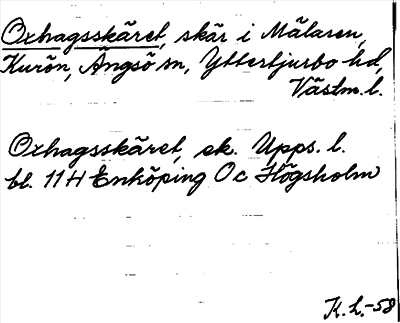 Oxhagsskäret, skär i Mälaren,
Kurön, Ängsö sn, Yttertjurbo hd,
Västm. l.
Oxhagsskäret, ek. Upps. l.
bl. 11 H Enköping Oc Högsholm
K. L. -58